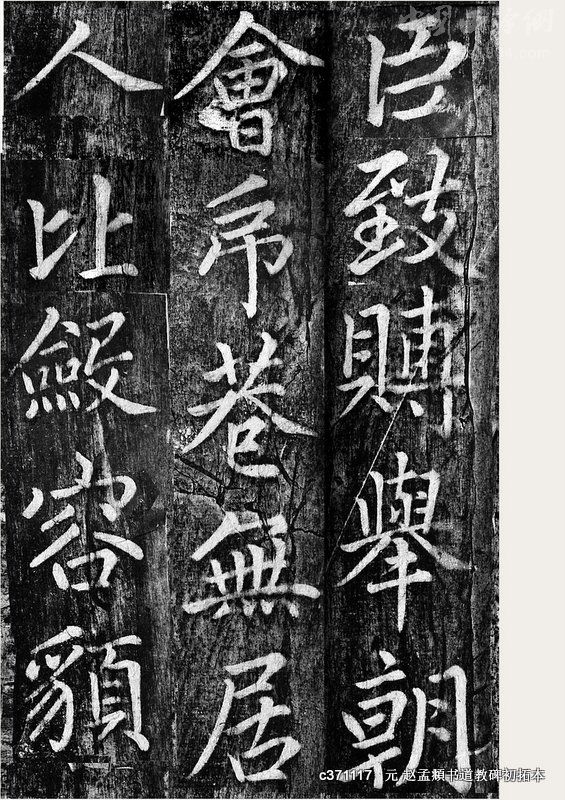 臣致賻舉朝
會弔巷無居
人比斂容額
c371117 元 赵孟頫书道教碑初拓本